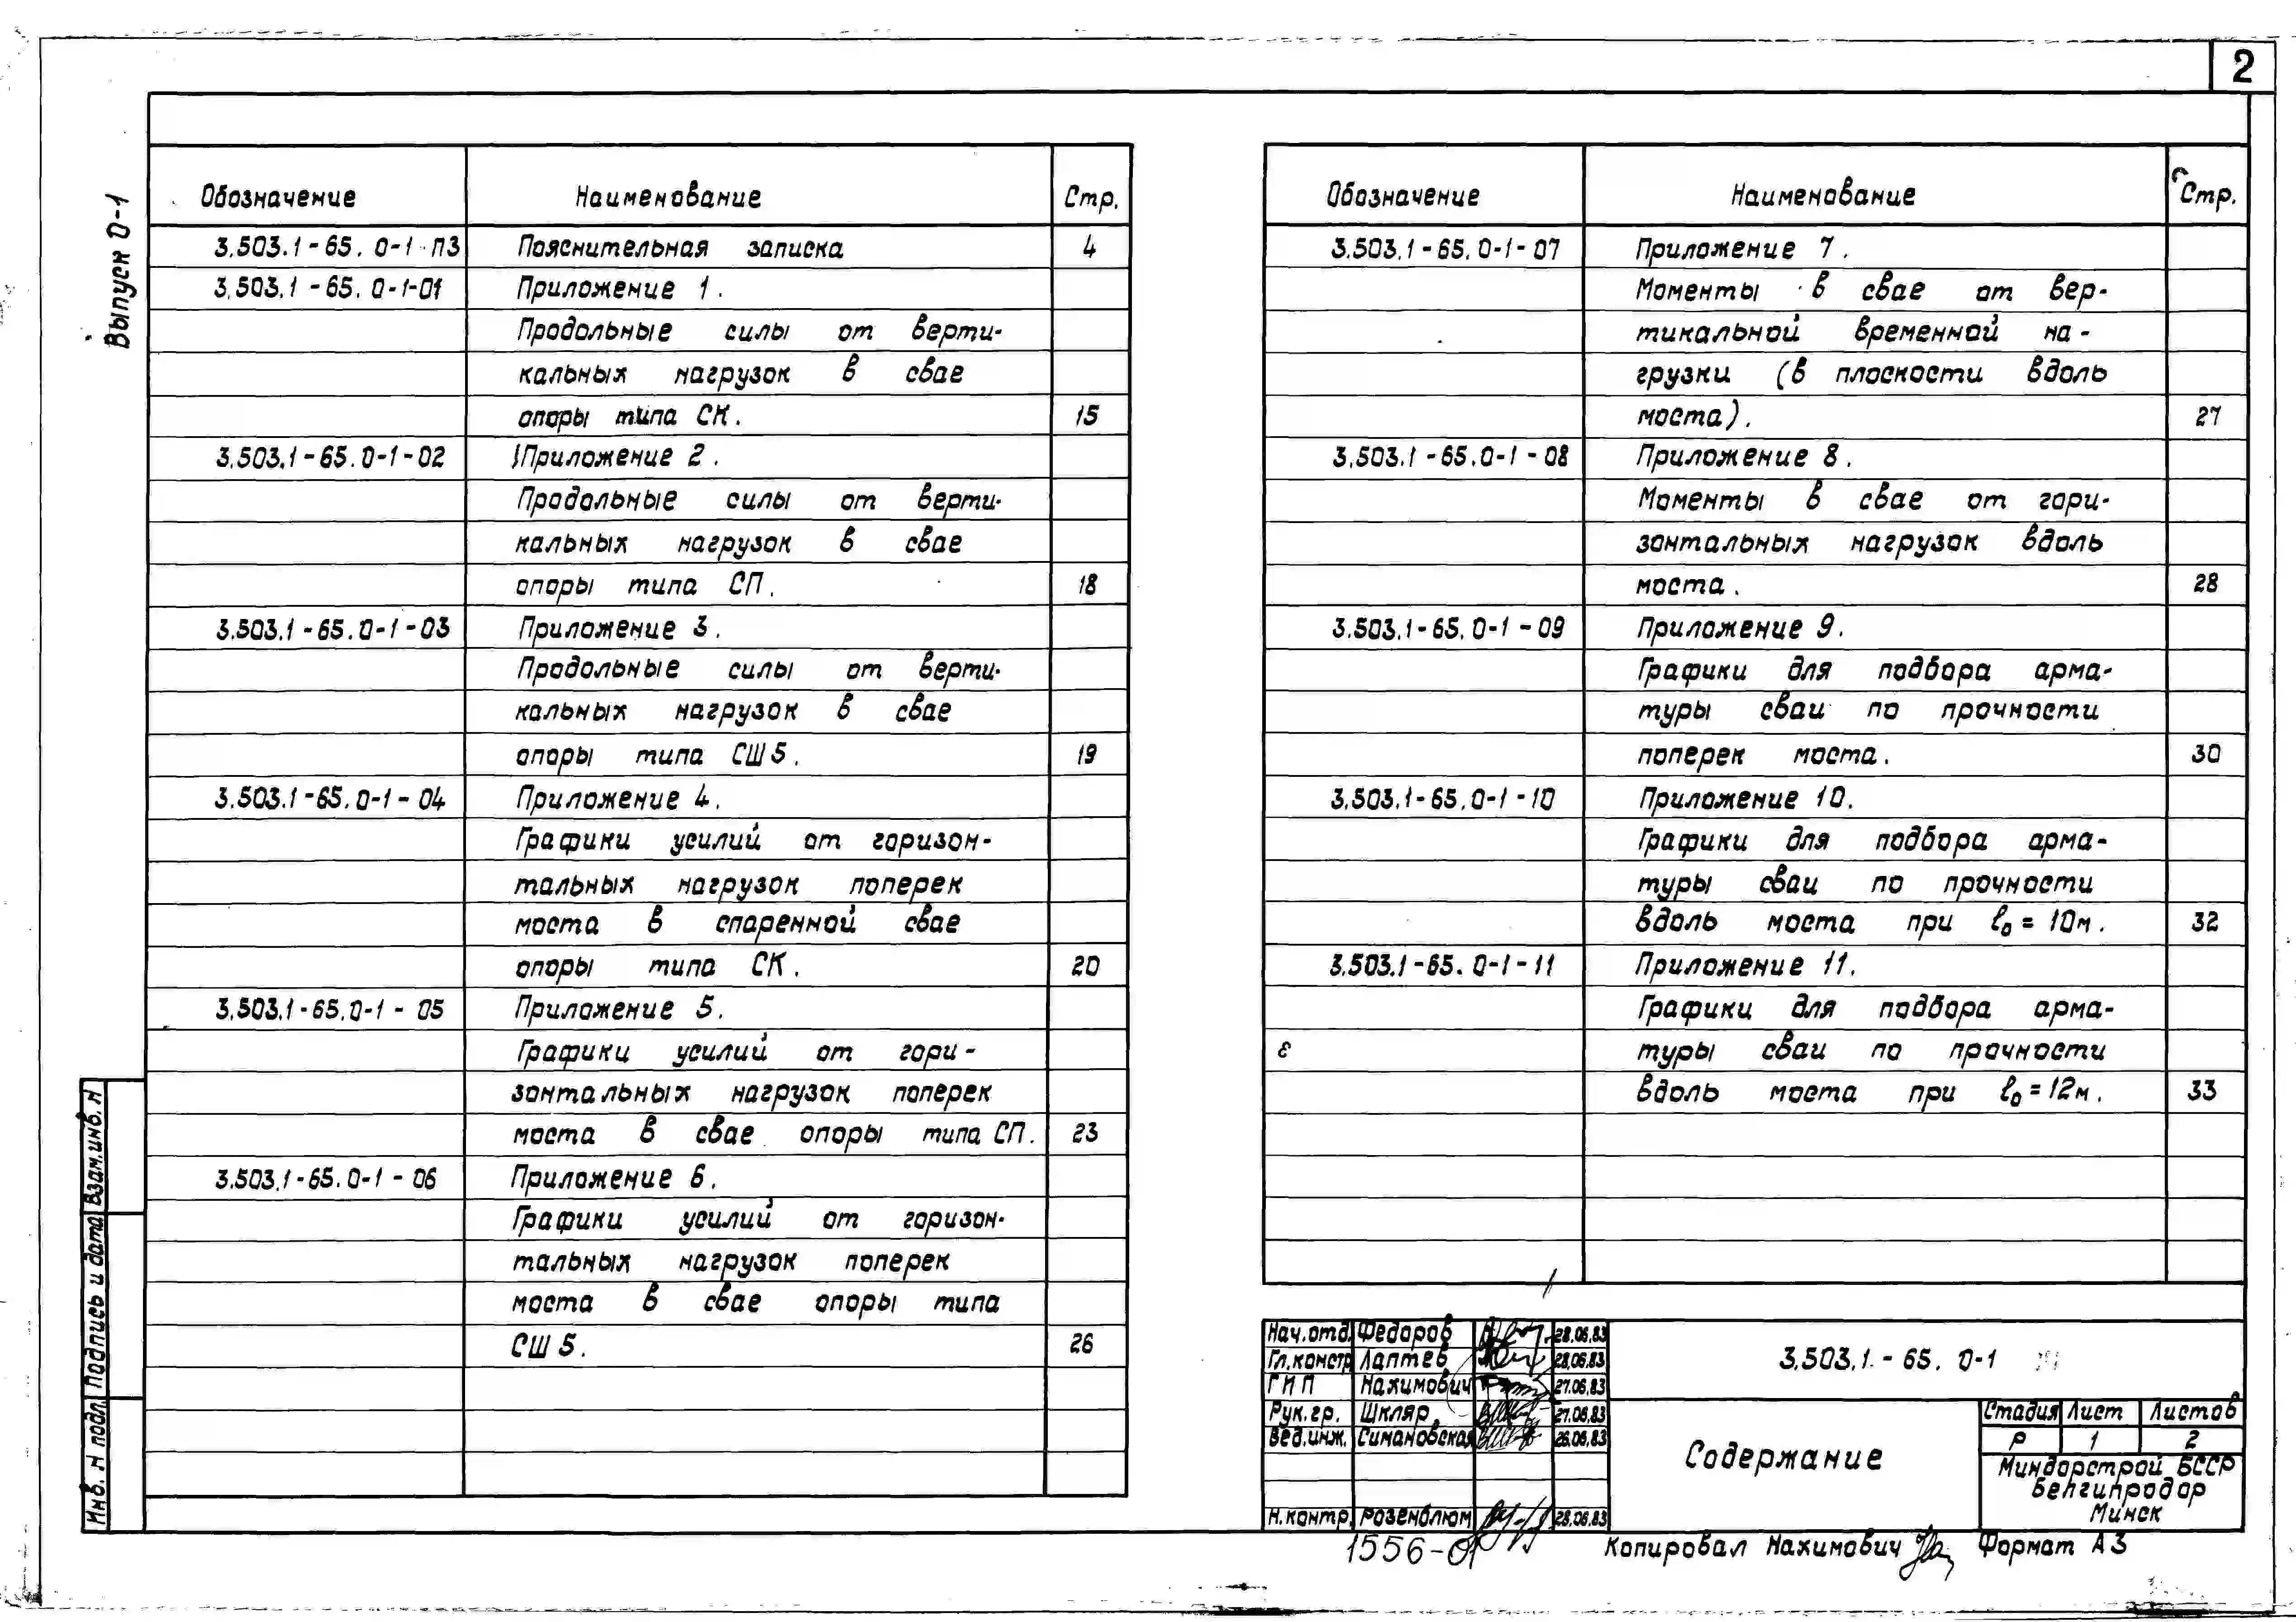 2
Выпуск 0-1
Обозначение Наименование Стр.
3.503.1-65.0-1-ПЗ Пояснительная записка 4
3.503.1-65.0-1-01 Приложение 1.
Продольные силы от верти-
кальных нагрузок в свае
опоры типа СК. 15
3.503.1-65.0-1-02 Приложение 2.
Продольные силы от верти-
кальных нагрузок в свае
опоры типа СП. 18
3.503.1-65.0-1-03 Приложение 3.
Продольные силы от верти-
кальных нагрузок в свае
опоры типа СШ5. 19
3.503.1-65.0-1-04 Приложение 4.
Графики усилий от горизон-
тальных нагрузок поперек
моста в спаренной свае
опоры типа СК. 20
3.503.1-65.0-1-05 Приложение 5.
Графики усилий от гори-
зонтальных нагрузок поперек
моста в свае опоры типа СП. 23
3.503.1-65.0-1-06 Приложение 6.
Графики усилий от горизон-
тальных нагрузок поперек
моста в свае опоры типа
СШ5. 26
Обозначение Наименование Стр.
3.503.1-65.0-1-07 Приложение 7.
Моменты в свае от вер-
тикальной временной на-
грузки (в плоскости вдоль
моста). 27
3.503.1-65.0-1-08 Приложение 8.
Моменты в свае от гори-
зонтальных нагрузок вдоль
моста. 28
3.503.1-65.0-1-09 Приложение 9.
Графики для подбора арма-
туры сваи по прочности
поперек моста. 30
3.503.1-65.0-1-10 Приложение 10.
Графики для подбора арма-
туры сваи по прочности
вдоль моста при ℓ₀=10м. 32
3.503.1-65.0-1-11 Приложение 11.
Графики для подбора арма-
туры сваи по прочности
вдоль моста при ℓ₀=12м. 33
Инв. N подл. Подпись и дата Взам.инв. N
Нач.отд. Федоров 28.06.83
Гл.констр Лаптев 28.06.83
ГИП Нахимович 27.06.83
Рук.гр. Шкляр 27.06.83
Вед.инж. Симановская 26.06.83
Н.контр. Розенблюм 28.06.83
3.503.1-65.0-1
Содержание
Стадия Лист Листов
Р 1 2
Миндорстрой БССР
Белгипродор
Минск
1556-01 Копировал Нахимович Формат А3